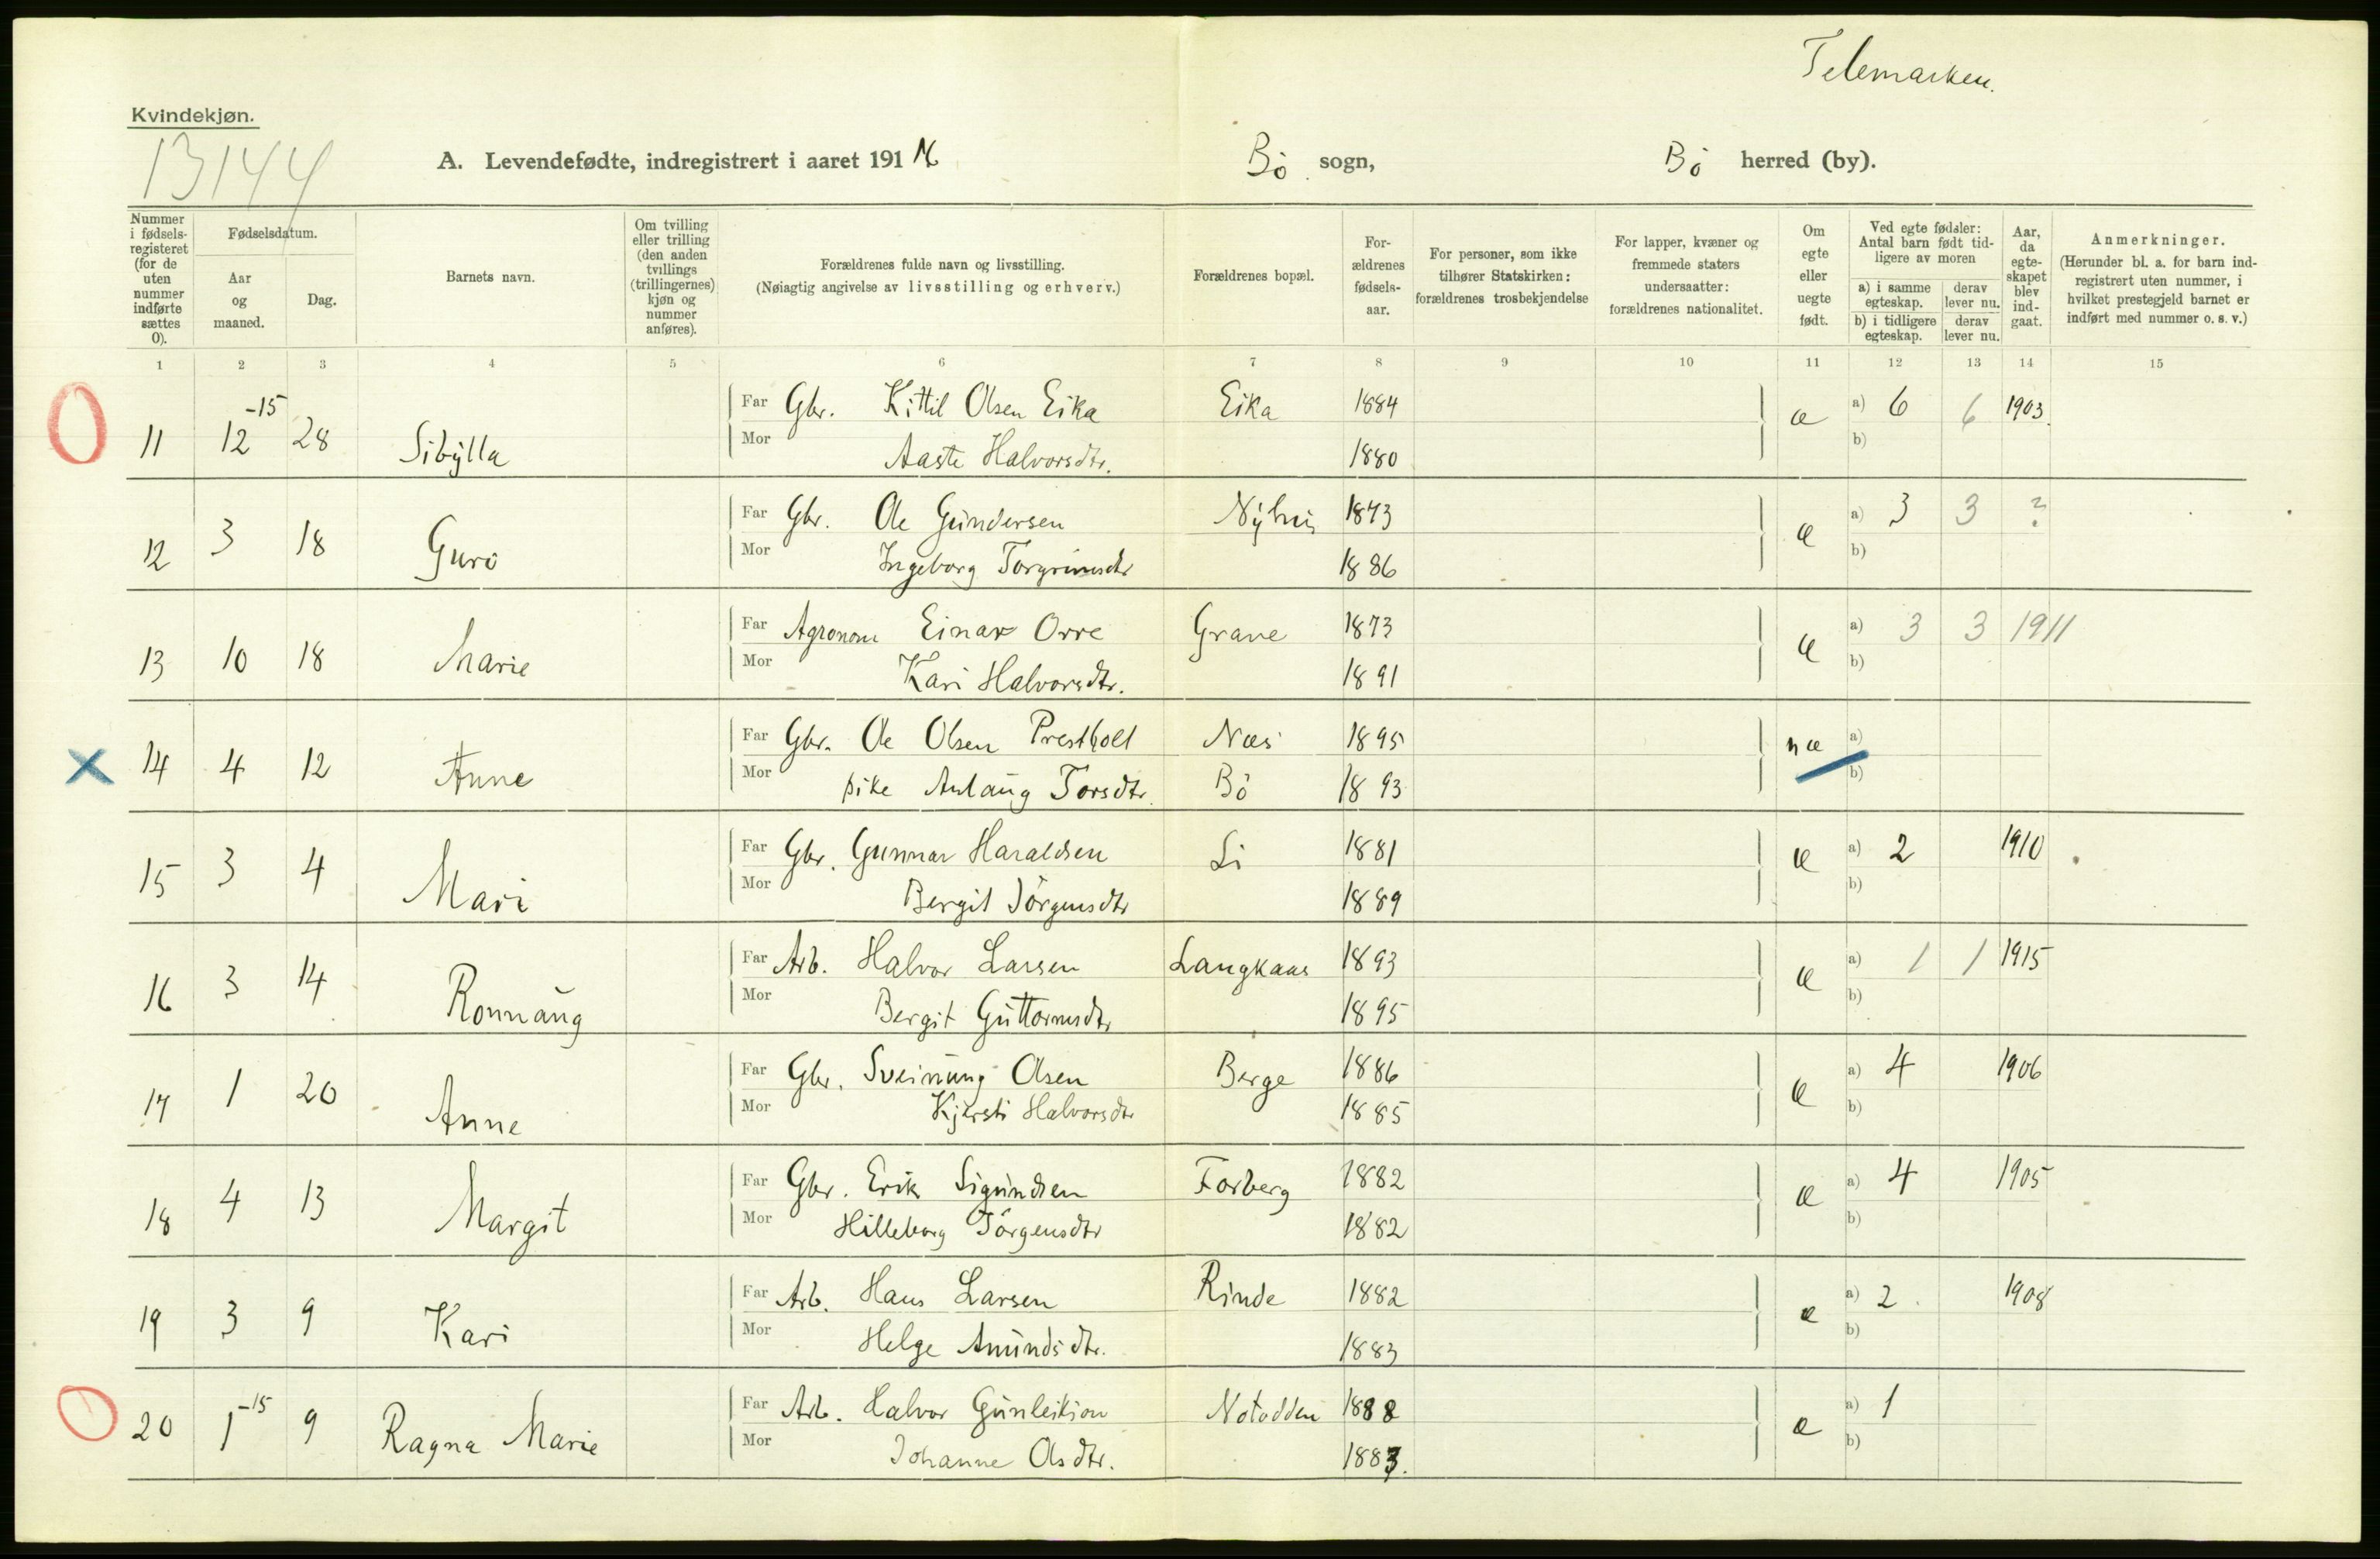 Telemarken.
Kvindekjøn.
13144
A. Levendefødte, indregistrert i aaret 1916 Bö sogn, Bö herred (by).
Nummer i fødsels-registeret (for de uten nummer indførte sættes 0).
Fødselsdatum.
Aar og maaned.
Dag.
Barnets navn.
Om tvilling eller trilling (den anden tvillings (trillingernes) kjøn og nummer anføres).
Forældrenes fulde navn og livsstilling.
(Nøiagtig angivelse av livsstilling og erhverv.)
Forældrenes bopæl.
For-ældrenes fødsels-aar.
For personer, som ikke tilhører Statskirken: forældrenes trosbekjendelse
For lapper, kvæner og fremmede staters undersaatter: forældrenes nationalitet.
Om egte eller uegte født.
Ved egte fødsler: Antal barn født tid-ligere av moren
a) i samme egteskap.
derav lever nu.
b) i tidligere egteskap.
derav lever nu.
Aar, da egte-skapet blev ind-gaat.
Anmerkninger.
(Herunder bl. a. for barn ind-registrert uten nummer, i hvilket prestegjeld barnet er indført med nummer o. s. v.)
1 2 3 4 5 6 7 8 9 10 11 12 13 14 15
11 12-15 28 Sibylla Far Gbr. Kittil Olsen Eika Eika 1884 æ a) 6 6 1903.
Mor Aaste Halvorsdtr. 1880 b)
12 3 18 Guro Far Gbr. Ole Gundersen Nyhus 1873 æ a) 3 3 ?
Mor Ingeborg Torgrimsdtr 1886 b)
13 10 18 Marie Far Agronom Einar Orre Grave 1873 æ a) 3 3 1911
Mor Kari Halvorsdtr. 1891 b)
14 4 12 Anne Far Gbr. Ole Olsen Prestholt Næs 1895 uæ a)
Mor pike Anlaug Torsdtr. Bö 1893 b)
15 3 4 Mari Far Gbr. Gunnar Haraldsen Li 1881 æ a) 2 1910
Mor Bergit Jörgensdtr 1889 b)
16 3 14 Ronnaug Far Arb. Halvor Larsen Langkaas 1893 æ a) 1 1 1915
Mor Bergit Guttormsdtr 1895 b)
17 1 20 Anne Far Gbr. Sveinung Olsen Berge 1886 æ a) 4 1906
Mor Kjersti Halvorsdtr 1885 b)
18 4 13 Margit Far Gbr. Erik Sigundsen Forberg 1882 æ a) 4 1905
Mor Hilleborg Jörgensdtr 1882 b)
19 3 9 Kari Far Arb. Hans Larsen Rinde 1882 æ a) 2 1908
Mor Helge Amundsdtr. 1883 b)
20 1-15 9 Ragna Marie Far Arb. Halvor Gunleikson Notodden 1888 æ a) 1
Mor Johanne Olsdtr. 1883. b)